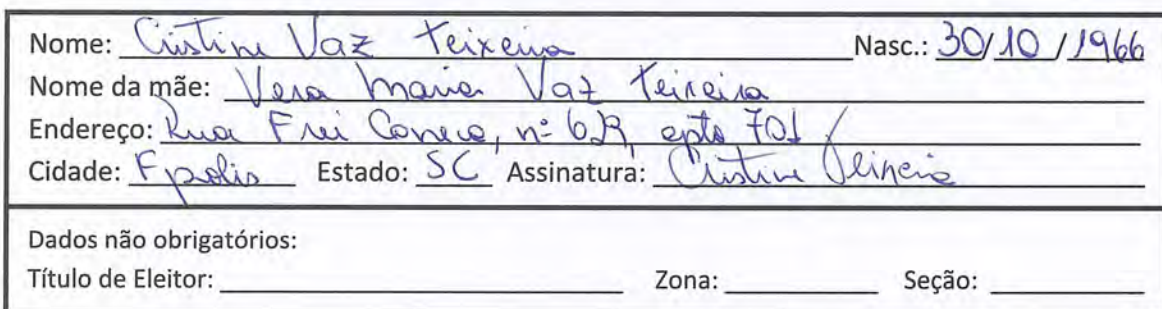 Nome: Cristine Vaz Teixeira Nasc.: 30/10/1966
Nome da mãe: Vera Maria Vaz Teixeira
Endereço: Rua Frei Caneca, nº apto 701
Cidade: Fpolis Estado: SC Assinatura: Cristine Teixeira
Dados não obrigatórios:
Título de Eleitor: Zona: Seção: